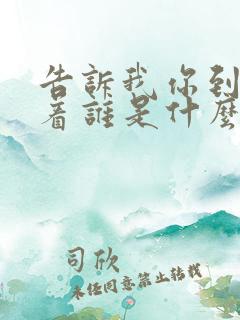 告訴我 你到
着誰是什麼
司欣
未经同意禁止转载